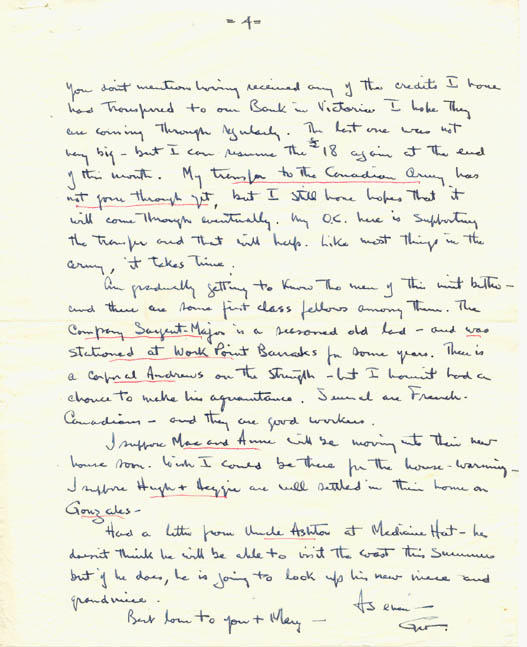 = 4 =
You don't mention having received any of the credits I have
had transferred to our Bank in Victoria I hope they
are coming through regularly. The last one was not
very big - but I can resume the £18 again at the end
of this month. My transfer to the Canadian Army has
not gone through yet, but I still have hopes that it
will come through eventually. My O.C. here is supporting
the transfer and that will help. Like most things in the
army, it takes time.
Am gradually getting to know the men of this unit better -
and there are some first class fellows among them. The
Company Sargent-Major is a seasoned old lad - and was
stationed at Work Point Barraks for some years. There is
a corporal Andrews on the strength - but I havn't had a
chance to make his aquantance. Several are French-
Canadians - and they are good workers.
I suppose Mac and Anne will be moving into their new
house soon. Wish I could be there for the house-warming -
I suppose Hugh + are well settled in their home on
Gonzales -
Had a letter from Uncle Ashton at Medicine Hat - he
doesn't think he will be able to visit the coast this summer
but if he does, he is going to look up his new niece and
grandniece.
As ever -
Best love to you + Mary -
Geo.